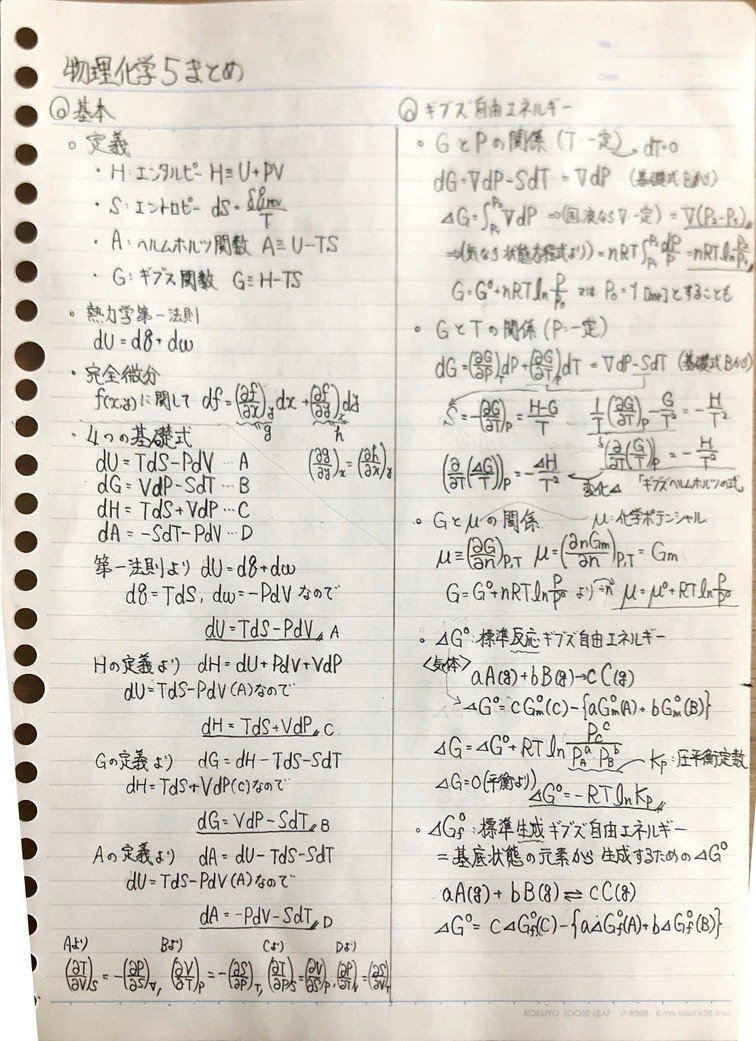 物理化学5まとめ
◎基本
○ 定義
・H:エンタルピー H≡U+PV
・S:エントロピー dS=δq_rev/T
・A:ヘルムホルツ関数 A≡U-TS
・G:ギブス関数 G≡H-TS
○ 熱力学第一法則
dU=dq+dw
・完全微分
f(x,y)に関して df=(∂f/∂x)_y dx+(∂f/∂y)_x dy
g h
・4つの基礎式 (∂g/∂y)_x=(∂h/∂x)_y
dU=TdS-PdV … A
dG=VdP-SdT … B
dH=TdS+VdP … C
dA=-SdT-PdV … D
第一法則より dU=dq+dw
dq=TdS, dw=-PdV なので
dU=TdS-PdV A
Hの定義より dH=dU+PdV+VdP
dU=TdS-PdV(A)なので
dH=TdS+VdP C
Gの定義より dG=dH-TdS-SdT
dH=TdS+VdP(C)なので
dG=VdP-SdT B
Aの定義より dA=dU-TdS-SdT
dU=TdS-PdV(A)なので
dA=-PdV-SdT D
Aより Bより Cより Dより
(∂T/∂V)_S=-(∂P/∂S)_V, (∂V/∂T)_P=-(∂S/∂P)_T, (∂T/∂P)_S=(∂V/∂S)_P, (∂P/∂T)_V=(∂S/∂V)_T
◎ギブズ自由エネルギー
・GとPの関係(T:一定) dT=0
dG=VdP-SdT=VdP (基礎式Bから)
ΔG=∫_P₁^P₂ VdP ⇒(固,液ならV一定)=V(P₂-P₁)
⇒(気なら状態方程式より)=nRT∫_P₁^P₂ dP/P=nRT ln P₂/P₁
G=G°+nRT ln P/P₀ 又は P₀=1[bar]とすることも
・GとTの関係(P:一定)
dG=(∂G/∂P)_T dP+(∂G/∂T)_P dT=VdP-SdT (基礎式Bから)
S=-(∂G/∂T)_P=(H-G)/T 1/T(∂G/∂T)_P-G/T²=-H/T²
(∂/∂T(G/T))_P=-H/T²
(∂/∂T(ΔG/T))_P=-ΔH/T² 変化Δ 「ギブズヘルムホルツの式」
・Gとμの関係 μ:化学ポテンシャル
μ≡(∂G/∂n)_P,T μ=(∂nGm/∂n)_P,T=Gm
G=G°+nRT ln P/P° より ÷n μ=μ°+RT ln P/P°
・ΔG°:標準反応ギブズ自由エネルギー
<気体>
aA(g)+bB(g)→cC(g)
ΔG°=cG°m(C)-{aG°m(A)+bG°m(B)}
ΔG=ΔG°+RT ln Pc^c/(P_A^a P_B^b) Kp:圧平衡定数
ΔG=0(平衡より) ΔG°=-RT ln Kp
・ΔG°f:標準生成ギブズ自由エネルギー
=基底状態の元素から生成するためのΔG°
aA(g)+bB(g)⇌cC(g)
ΔG°=cΔG°f(C)-{aΔG°f(A)+bΔG°f(B)}
KOKUYO LOOSE-LEAF ノ-836B 6 mm ruled×36 lines